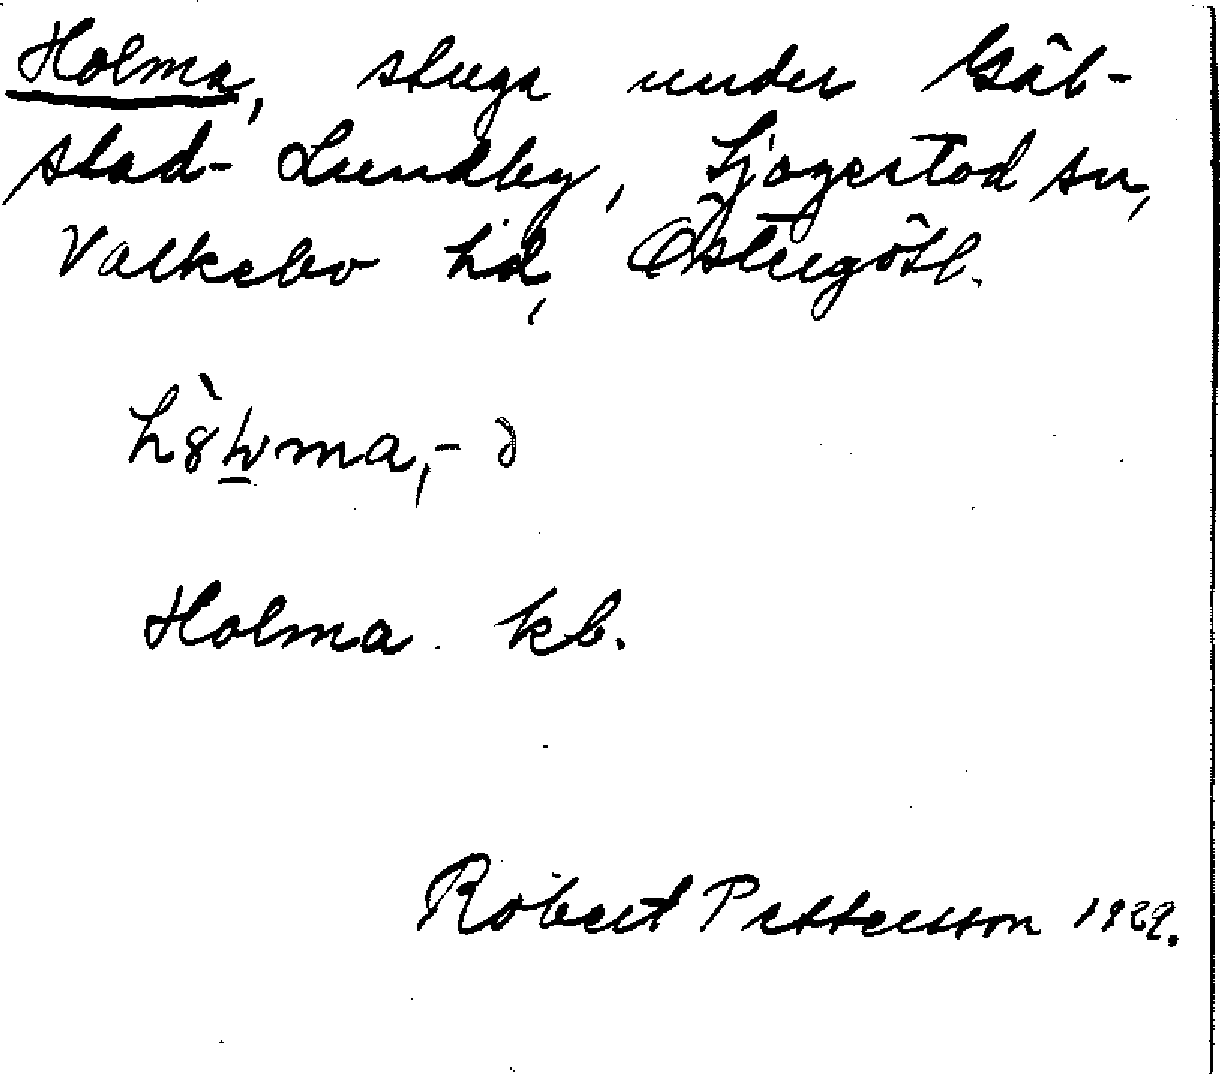 Holma, stuga under Gäl-
stad-Lundby, Sjögestad sn,
Valkebo hd, Östergötl.
Holma kb.
Robert Pettersson 1929.